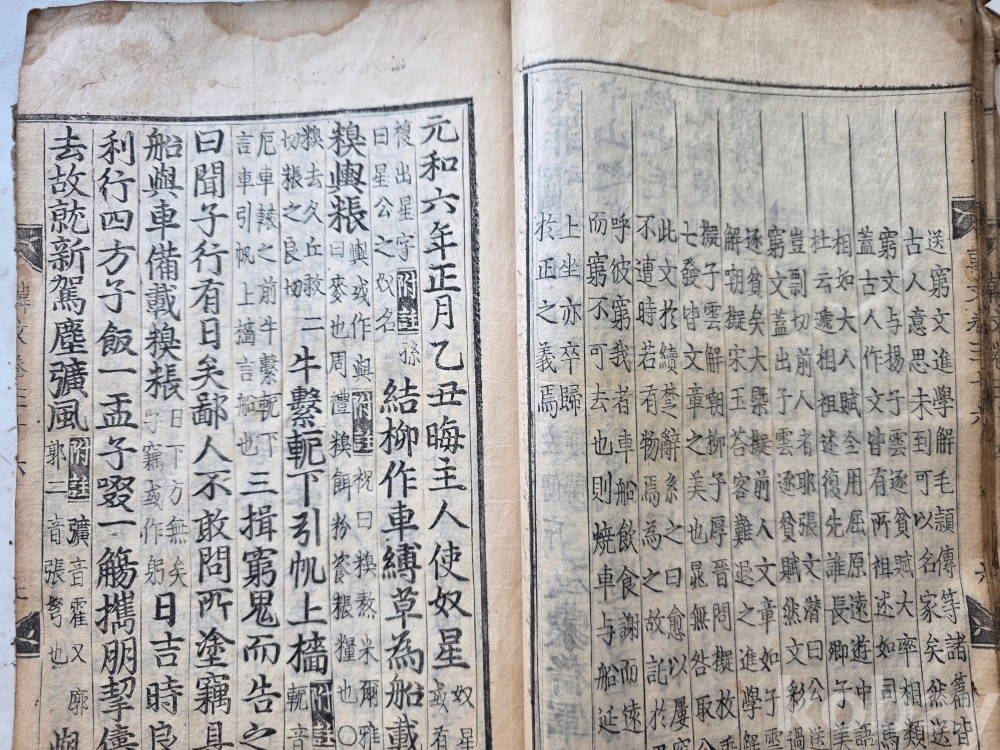 送窮文進學解毛頴傳等諸篇皆
古人意思未到可以名家矣然送
窮文与揚子雲逐貧賦大率相類
蓋古人作文皆有所祖述如司馬
相如大人賦全用屈原遠遊中語
杜云遞相祖述復先誰長卿子美
豈剽切前人者耶張文潜曰公送
窮文蓋出子雲逐貧賦然文彩過
逐貧矣大槩擬前人文章如子雲
解朝擬宋玉荅客難退之進學解
擬子雲解朝柳子厚晋問擬枚
七發皆文章之美也晁無咎取公
此文於續楚辭系之曰愈以屢窮
不連時若有物焉為之故託於
呼彼窮我者車船飲食謝而遠
而窮不可去也則燒車与船延
上坐亦卒歸
於正之義焉
韓文卷三十六
元和六年正月乙丑晦主人使奴星奴星或有
複出星字附註孫曰星公之奴名結柳作車縛草為船載
糗輿粻輿或作與附註祝曰糗熬米爾雅曰麥也周禮糗餌粉餈粻糧也○
糗去久丘救二切粻之良切牛繫軛下引帆上檣附註軛音
厄車轅之前牛繫軛下言車引帆上檣言船也三揖窮鬼而告之
曰聞子行有日矣鄙人不敢問所塗竊具
船與車備載糗粻日下方無矣子竊或作躬日吉時良
利行四方子飯一盂子啜一觴攜朋挈儔
去故就新駕塵彍風附註彍音霍又廓郭二音張弩也與